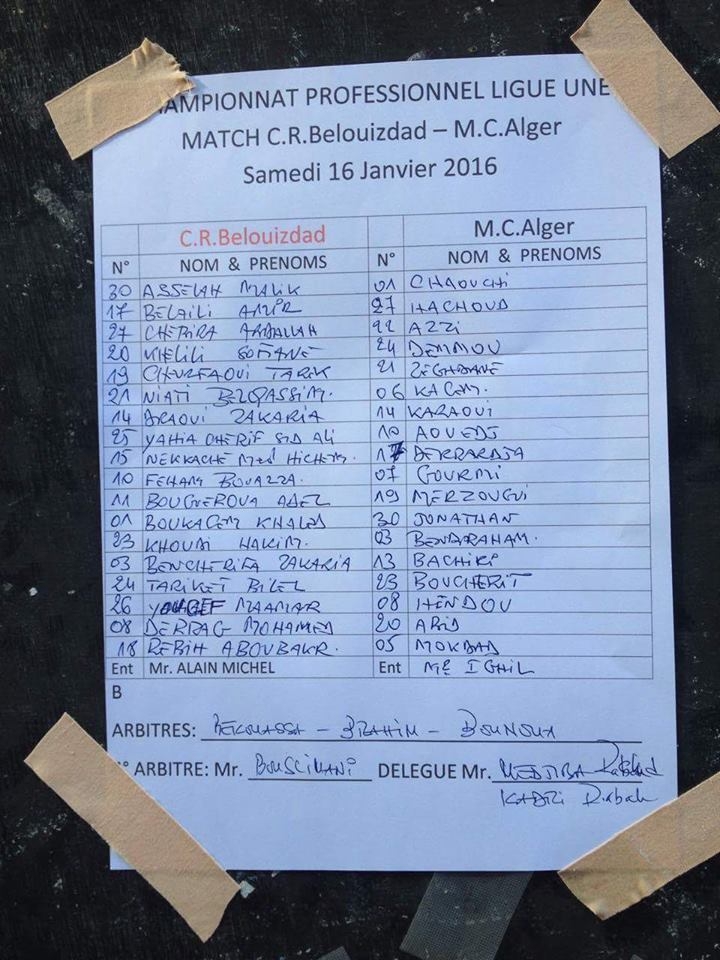 CHAMPIONNAT PROFESSIONNEL LIGUE UNE
MATCH C.R.Belouizdad – M.C.Alger
Samedi 16 Janvier 2016
C.R.Belouizdad M.C.Alger
N° NOM & PRENOMS N° NOM & PRENOMS
30 ASSELAH MALIK 01 CHAOUCHI
17 BELAILI AMIR 27 HACHOUD
27 CHERIRA ABDALLAH 22 AZZI
20 KHELILI SOFIANE 24 DEMMOU
19 CHERFAOUI TARIK 21 ZEGHDANE
21 NIATI BELQASSIM. 06 KACEM.
14 DRAOUI ZAKARIA 14 KARAOUI
25 YAHIA CHERIF SID ALI 10 AOUEDJ
15 NEKKACHE Med HICHEM. 17 DERRARDJA
10 FEHAM BOUAZZA. 07 GOURMI
11 BOUGUEROUA ADEL 19 MERZOUGUI
01 BOUKACEM KHALED 30 JONATHAN
23 KHOUDI HAKIM. 03 BENBRAHAM.
03 BENCHERIFA ZAKARIA 13 BACHIRI
24 TARIKET BILEL 23 BOUCHERIT
26 YOUCEF MAAMAR 08 HENDOU
08 DERRAG MOHAMED 20 ABID
18 REBIH ABOUBAKR. 05 MOKDAD
Ent Mr. ALAIN MICHEL Ent Mr IGHIL
B
ARBITRES: - BRAHIM - BOUNOUA
N° ARBITRE: Mr. BOUSLIMANI DELEGUE Mr. MEDJIBA Rachid
KADRI Rabah